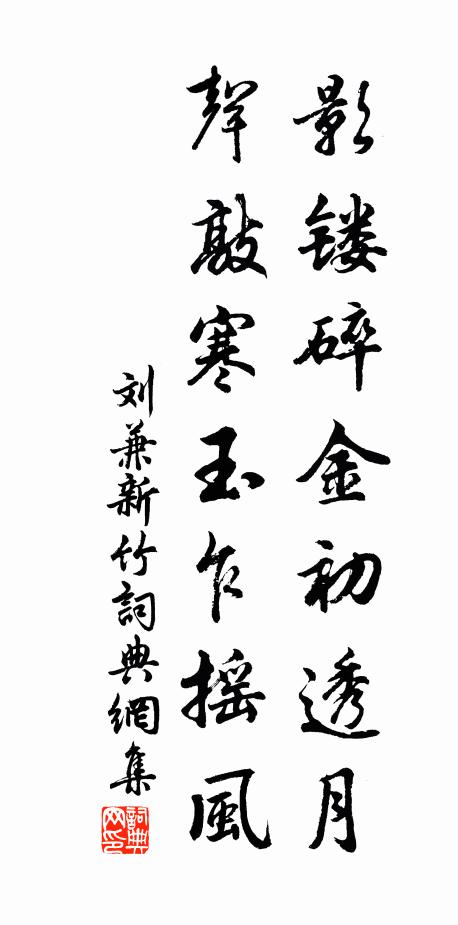 影镂碎金初透月
聲敲寒玉乍摇風
刘兼新竹詞典網集
詞典网印